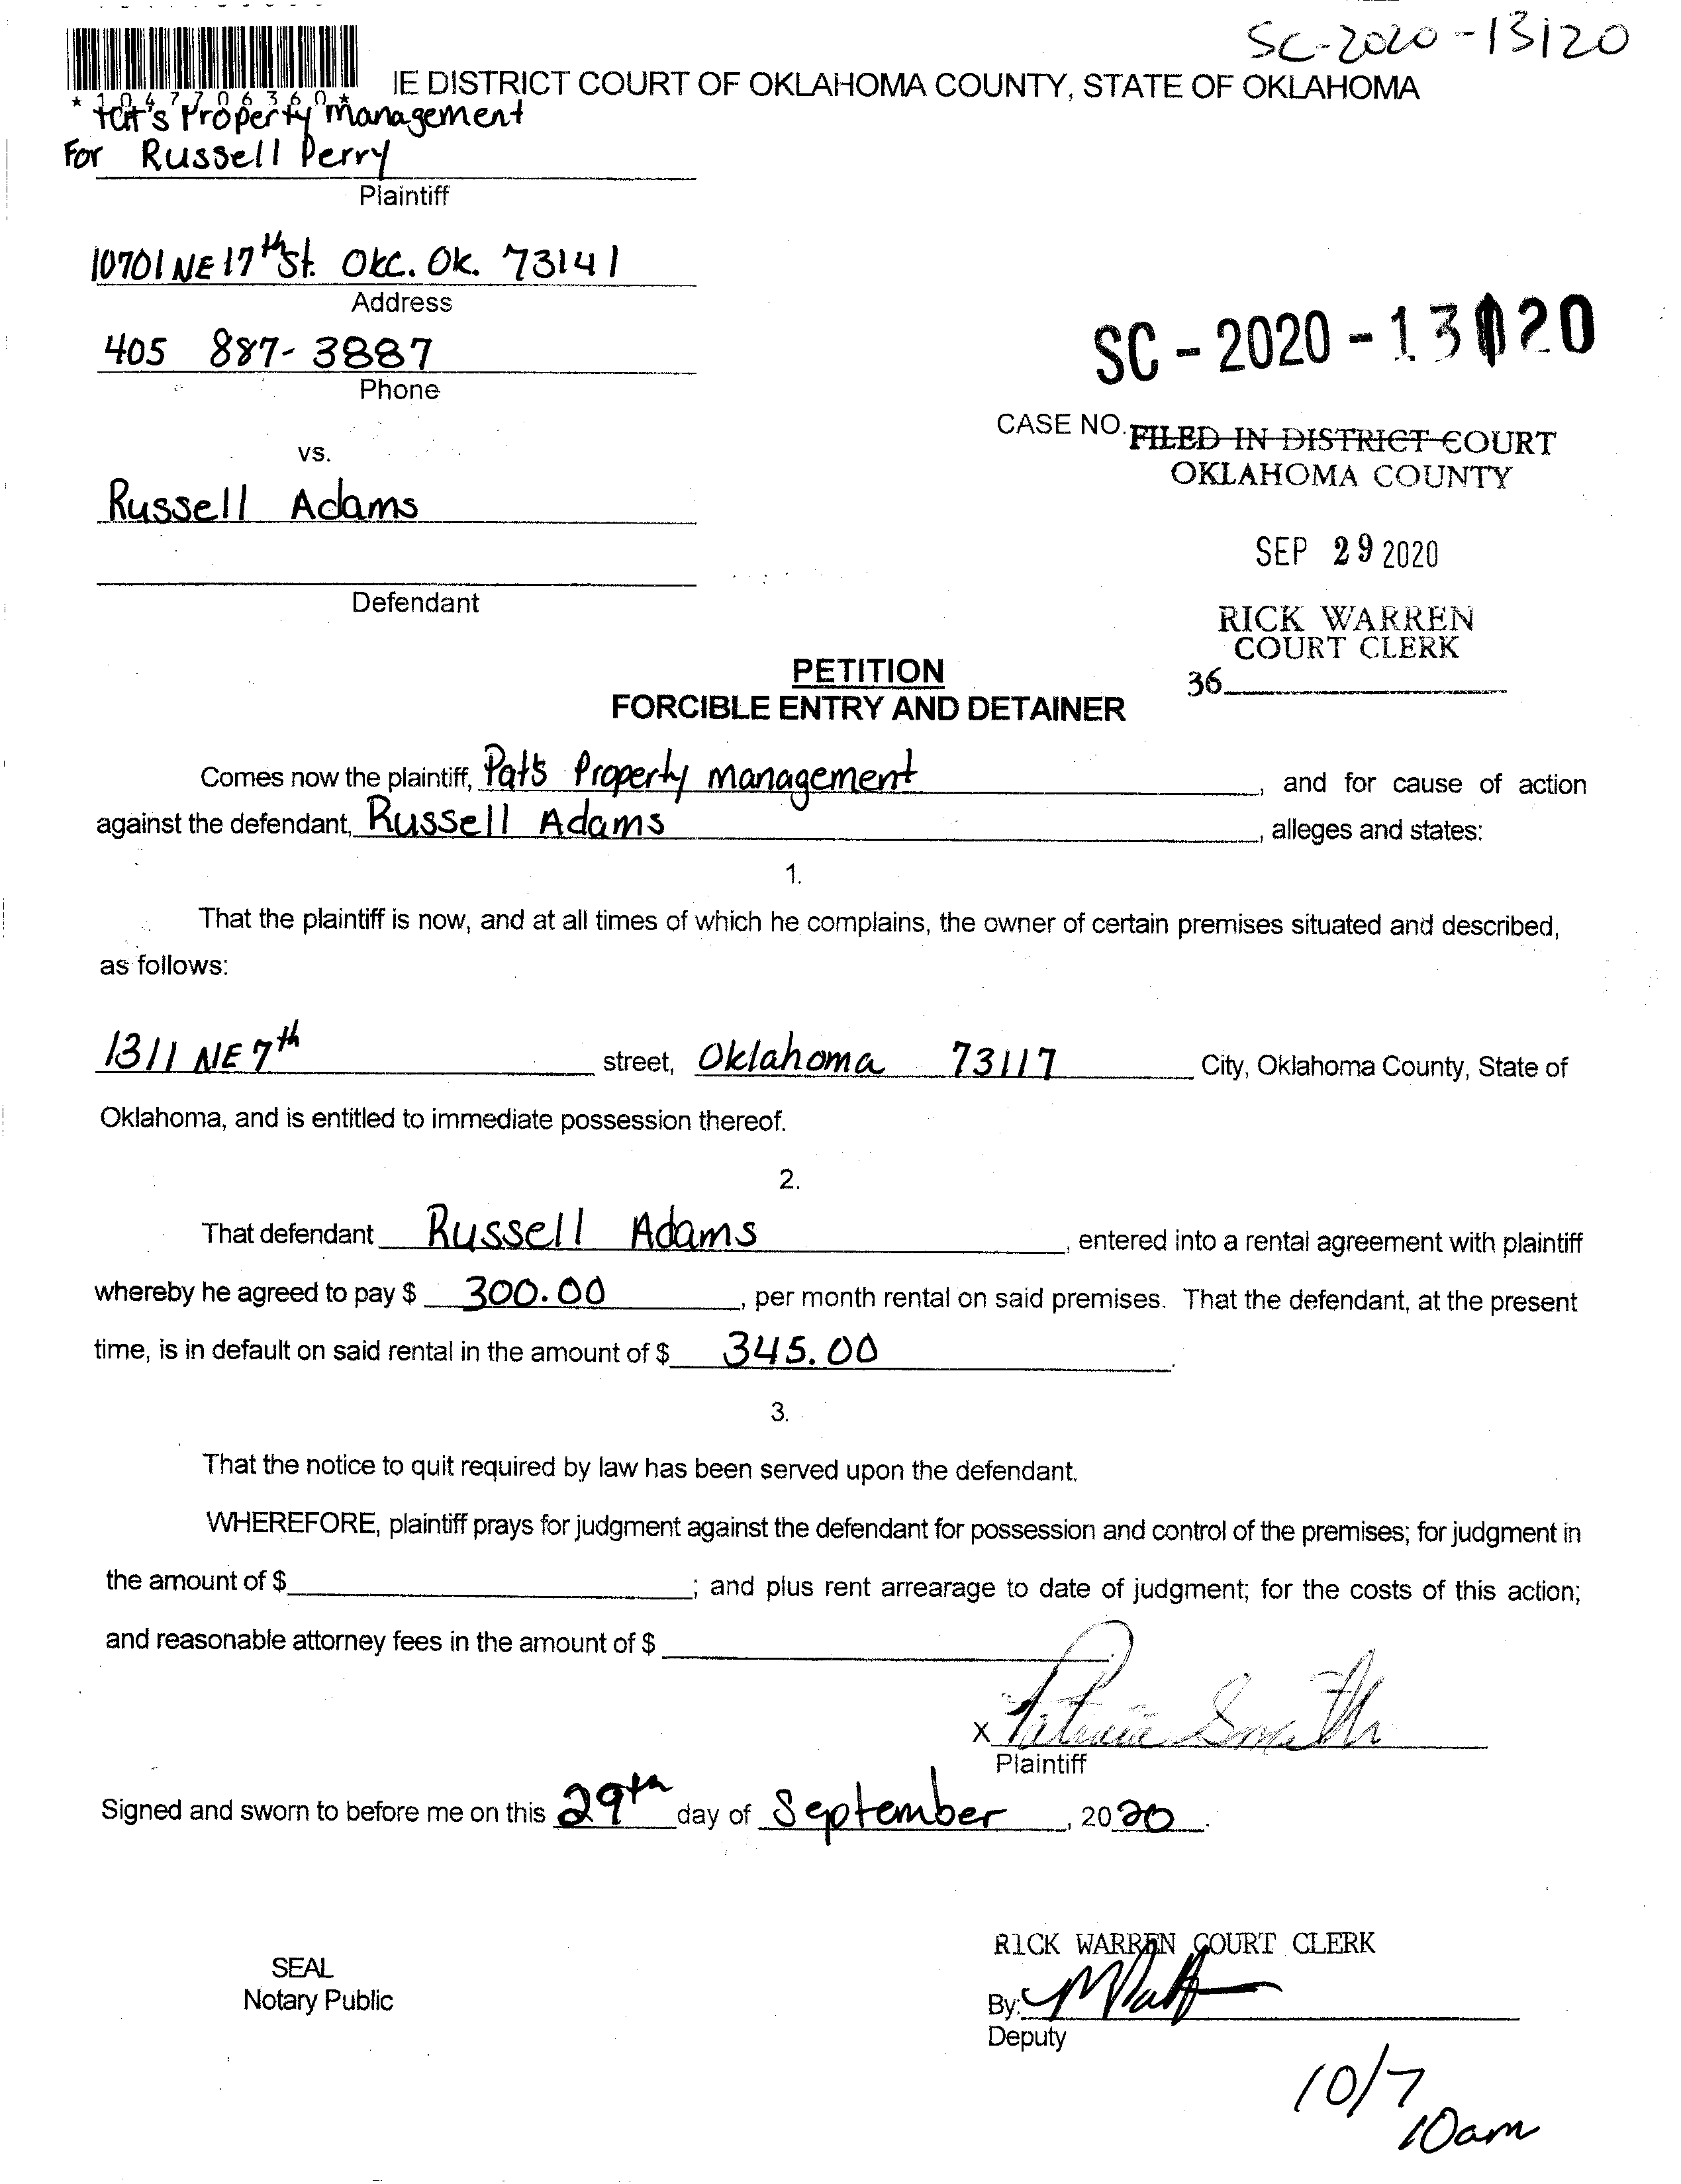 SC-2020-13120
IE DISTRICT COURT OF OKLAHOMA COUNTY, STATE OF OKLAHOMA
*1047706360*
Pat's Property Management
For Russell Perry
Plaintiff
10701 NE 17th St. OKC. OK. 73141
Address
405 887-3887
Phone
SC-2020-13120
CASE NO.
FILED IN DISTRICT COURT
OKLAHOMA COUNTY
vs.
Russell Adams
SEP 29 2020
Defendant
RICK WARREN
COURT CLERK
36
PETITION
FORCIBLE ENTRY AND DETAINER
Comes now the plaintiff, Pat's Property management, and for cause of action
against the defendant, Russell Adams, alleges and states:
1.
That the plaintiff is now, and at all times of which he complains, the owner of certain premises situated and described,
as follows:
1311 NE 7th street, Oklahoma 73117 City, Oklahoma County, State of
Oklahoma, and is entitled to immediate possession thereof.
2.
That defendant Russell Adams, entered into a rental agreement with plaintiff
whereby he agreed to pay $ 300.00, per month rental on said premises. That the defendant, at the present
time, is in default on said rental in the amount of $ 345.00.
3.
That the notice to quit required by law has been served upon the defendant.
WHEREFORE, plaintiff prays for judgment against the defendant for possession and control of the premises; for judgment in
the amount of $ ; and plus rent arrearage to date of judgment; for the costs of this action;
and reasonable attorney fees in the amount of $ .
X Patricia Smith
Plaintiff
Signed and sworn to before me on this 29th day of September, 2020.
RICK WARREN COURT CLERK
SEAL
Notary Public
By:
Deputy
10/7
10am